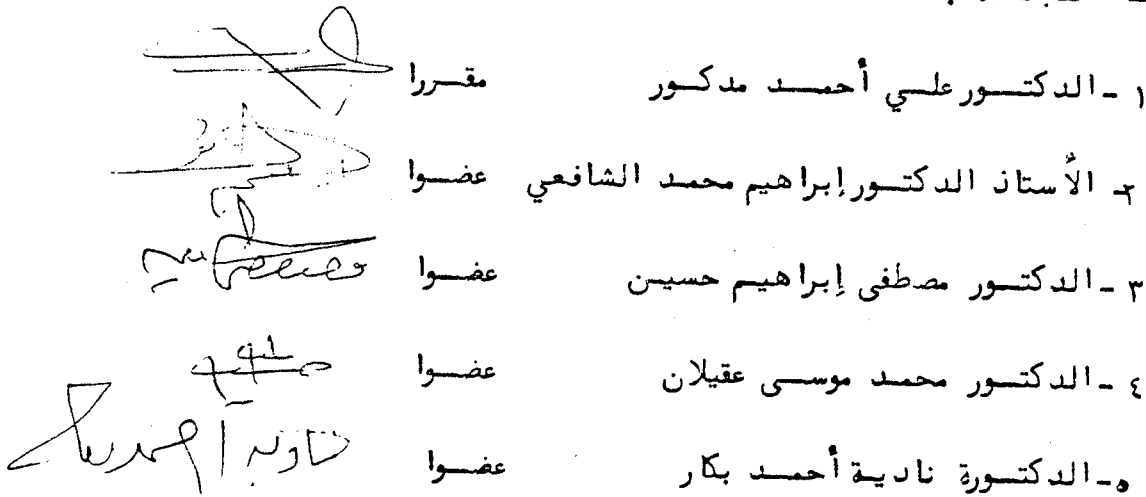 ١ - الدكتور علي أحمد مدكور مقررا
٢ - الأستاذ الدكتور إبراهيم محمد الشافعي عضوا
٣ - الدكتور مصطفى إبراهيم حسين عضوا
٤ - الدكتور محمد موسى عقيلان عضوا
٥ - الدكتورة نادية أحمد بكار عضوا
نادية أحمد بكار